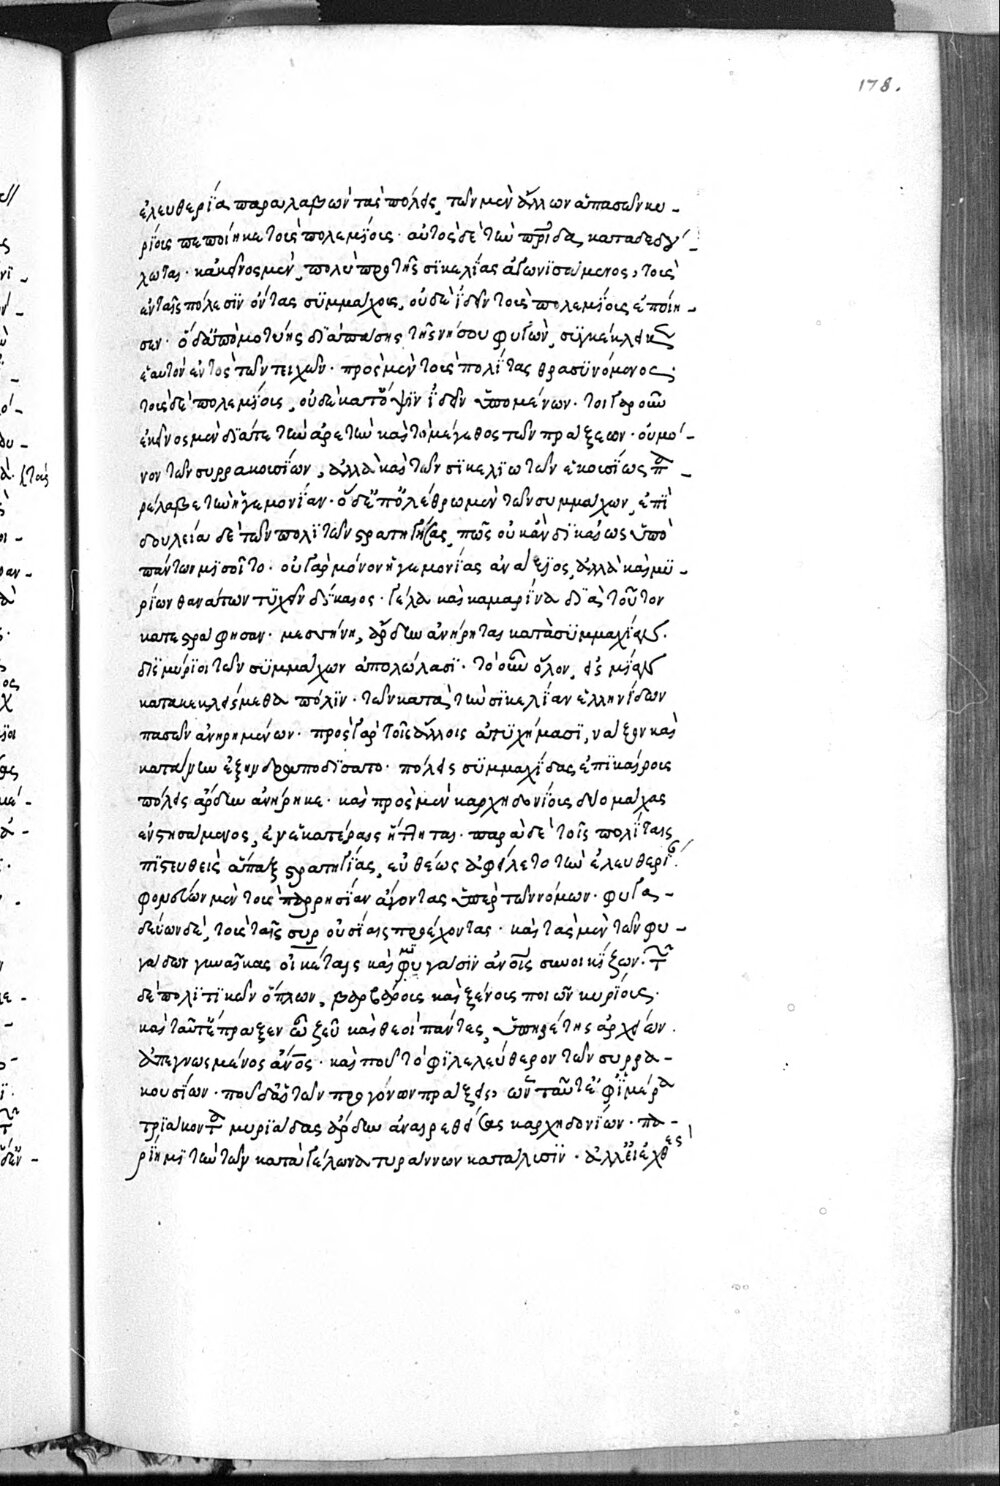 178.
ἐλευθερία παραλαβὼν τὰς πόλεις, τῶν μὲν ἄλλων ἁπασῶν κυ-
ρίους πεποίηκε τοὺς πολεμίους· αὐτὸς δὲ τὴν πρίδα καταδεδου-
λωται· κἀκεῖνος μὲν πολὺ πρὸ τῆς σϊκελίας ἀγωνϊσάμενος, τοὺς
ἐν ταῖς πόλεσϊν ὄντας συμμάχους, οὐδὲ ἰδεῖν τοὺς πολεμίους ἐποίη-
σεν· ὁ δ' ἀπὸ μοτύης δϊὰ πάσης τῆς νήσου φυγὼν, συγκέκλεικεν
ἑαυτὸν ἐντὸς τῶν τειχῶν· πρὸς μὲν τοὺς πολίτας θρασϋνόμενος·
τοὺς δὲ πολεμίους, οὐδὲ κατ' ὄψϊν ἰδεῖν ὑπομένων· τοιγαροῦν
ἐκεῖνος μὲν διά τε τὴν ἀρετὴν καὶ τὸ μέγεθος τῶν πράξεων· οὐ μό-
νον τῶν συρρακουσίων, ἀλλὰ καὶ τῶν σϊκελιωτῶν ἑκουσίως πα-
ρέλαβε τὴν ἡγεμονίαν· ὁ δ' ἐπ' ὀλέθρω μὲν τῶν συμμάχων, ἐπὶ
δουλεία δὲ τῶν πολϊτῶν στρατηγήσας, πῶς οὐκ ἂν δικαίως ὑπὸ
πάντων μισοῖτο· οὐ γὰρ μόνον ἡγεμονίας ἀνάξϊος, ἀλλὰ καὶ μυ-
ρίων θανάτων τυχεῖν δίκαιος· γέλα καὶ καμαρίνα δϊὰ τοῦτον
κατεστράφησαν· μεσσήνη, ἄρδην ἀνήρηται κατὰ συμμαχίαν·
δισμύριοι τῶν συμμάχων ἀπολώλασϊ· τὸ οὖν ὅλον, εἰς μίαν
κατακεκλείμεθα πόλϊν· τῶν κατὰ τὴν σϊκελίαν ἑλληνίδων
πασῶν ἀνῃρημένων· πρὸς γὰρ τοῖς ἄλλοις ἀτυχήμασϊ, νάξον καὶ
κατάνην ἐξηνδραποδίσατο· πόλεις συμμαχίδας ἐπϊκαίρους
πόλεις ἄρδην ἀνήρηκε· καὶ πρὸς μὲν καρχηδονίους δύο μάχας
ἐνστησάμενος, ἐν ἑκατέραις ἥττηται· παρὰ δὲ τοῖς πολίταις
πϊστευθεὶς ἅπαξ στρατηγίας, εὐθέως ἀφείλετο τὴν ἐλευθερί·
φονεύων μὲν τοὺς παρρησίαν ἄγοντας ὑπὲρ τῶν νόμων· φυγα-
δεύων δὲ, τοὺς ταῖς συρ οὐσίαις προέχοντας· καὶ τὰς μὲν τῶν φυ-
γάδων γυναῖκας οἰκέταις καὶ μϊφυγάσϊν ἀνοῖς συνοικίζων· τῶν
δὲ πολϊτϊκῶν ὅπλων, βαρβάρους καὶ ξένους ποιῶν κυρίους·
καὶ ταῦτ' ἔπραξεν ὦ ζεῦ καὶ θεοὶ πάντες, ὑπηρέτης ἀρχείων·
ἀπεγνωσμένος ἀνος· καὶ ποῦ τὸ φϊλελεύθερον τῶν συρρα-
κουσίων· ποῦ δ' αἱ τῶν προγόνων πράξεις, ἐῶ τὰς ἐφ' ἱμέρα
τριάκοντα μυριάδας ἄρδην ἀναιρεθείσας καρχηδονίων· πα-
ρίημι τὴν τῶν κατὰ γέλωνα τυράννων κατάλυσϊν· ἀλλ' εχθες